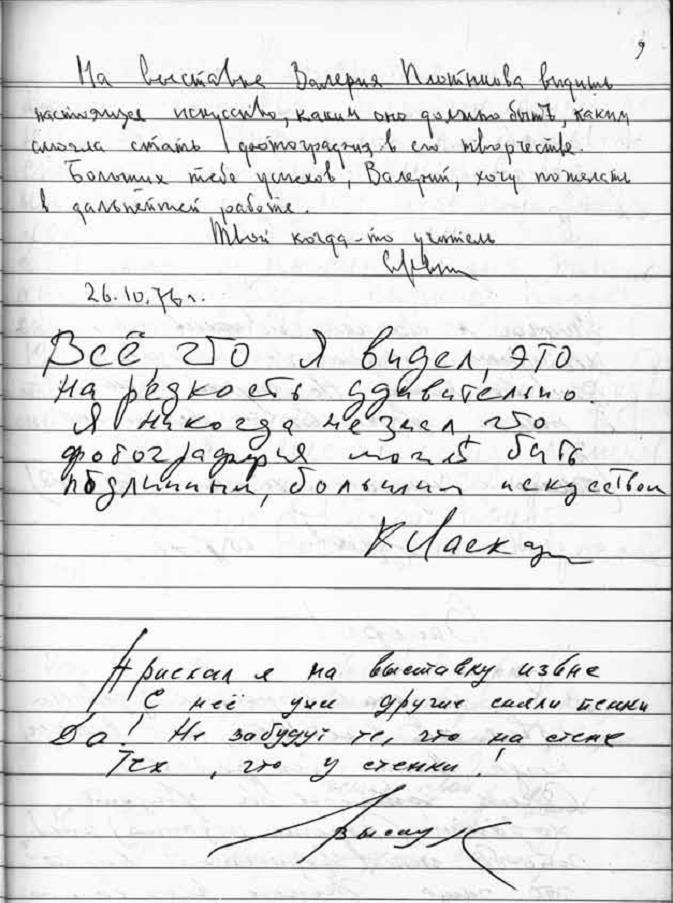 9
На выставке Валерия Плотникова видишь
настоящее искусство, каким оно должно быть, каким
смогла стать фотография в его творчестве.
Больших тебе успехов, Валерий, хочу пожелать
в дальнейшей работе.
Твой когда-то учитель
26.10.76 г.
Всё, что я видел, это
на редкость удивительно.
Я никогда не знал что
фотография может быть
подлинным, большим искусством
К Ласкари
Прискакал я на выставку извне
С неё уже другие сняли пенки
Да! Не забудут те, что на стене
Тех, что у стенки!
Высоц